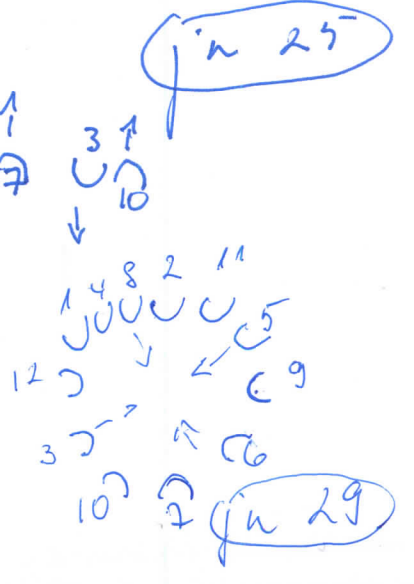 jn 25
1
3
7 10
1 4 8 2 11
5
12 9
3 6
10 7
jn 29